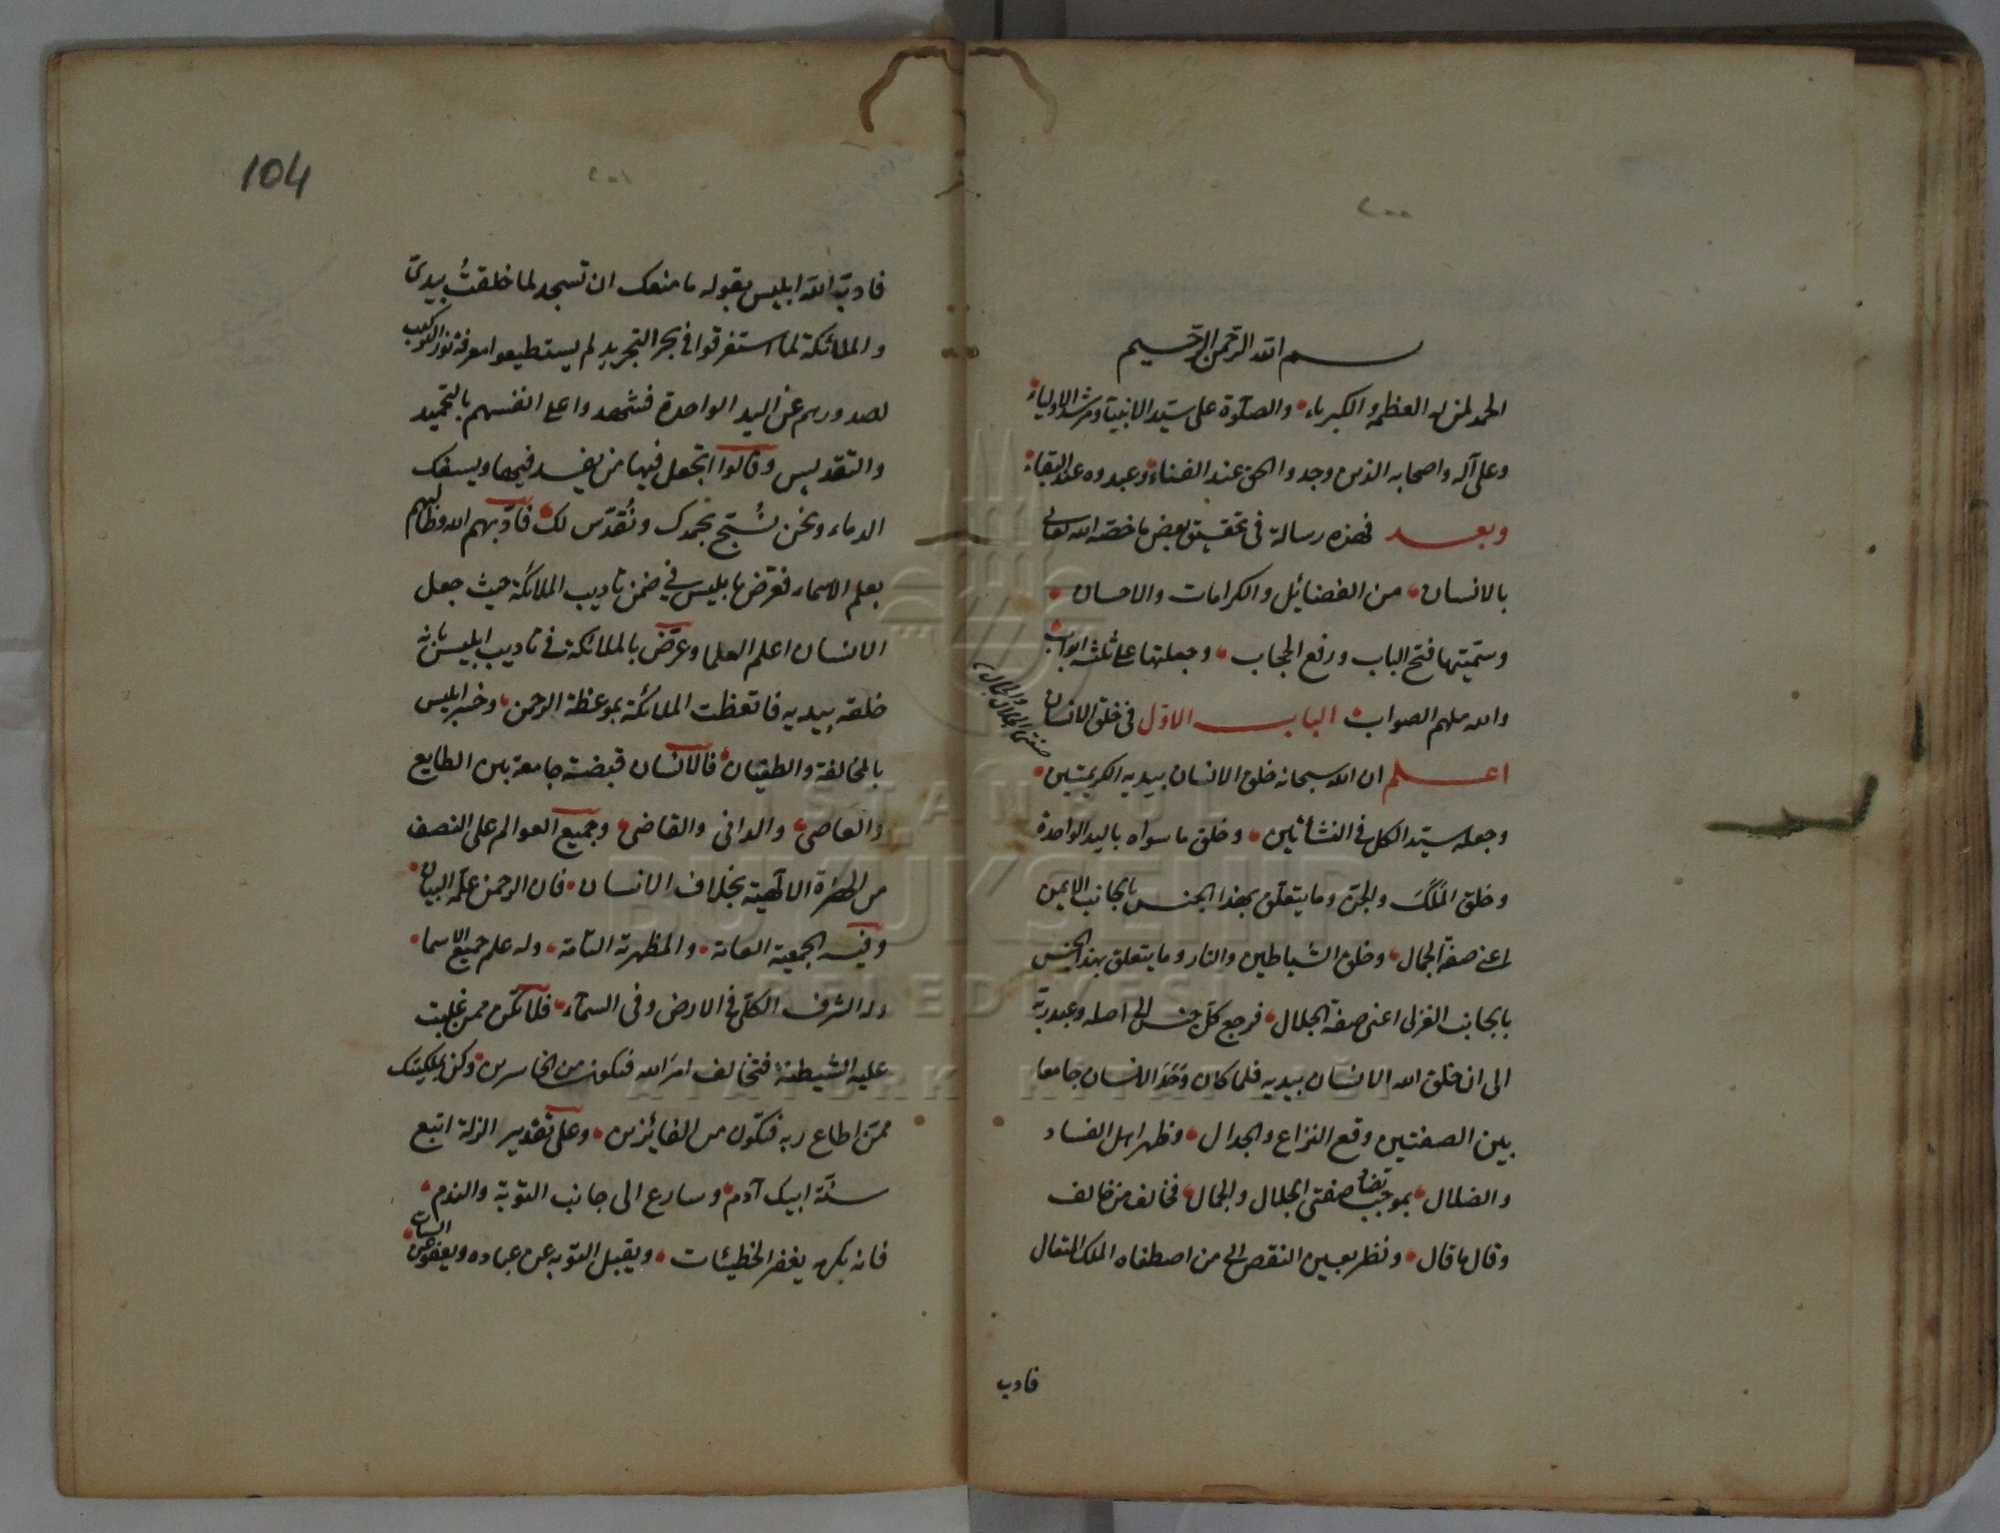 ٢٠٠
بسم الله الرحمن الرحيم
الحمد لمن له العظمة والكبرياء والصلوة على سيد الانبياء ومرشد الاولياء
وعلى آله واصحابه الذين وجدوا الحق عند الفناء وعبدوه عند البقاء
وبعد فهذه رسالة فى تحقيق بعض ما خصه الله تعالى
بالانسان من الفضائل والكرامات والاحسان
وسميتها فتح الباب ورفع الحجاب وجعلتها على ثلثة ابواب
والله ملهم الصواب الباب الاول فى خلق الانسان
صفتى الجلال والجمال
اعلم ان الله سبحانه خلق الانسان بيديه الكريمتين
وجعله سيد الكل فى النشأتين وخلق ما سواه باليد الواحدة
وخلق الملك والجن وما يتعلق بهذا الجنس بالجانب الايمن
اعنى صفة الجمال وخلق الشياطين والنار وما يتعلق بهذا الجنس
بالجانب الغربى اعنى صفة الجلال فرجع كل جنس الى اصله وعبد ربه
الى ان خلق الله الانسان بيديه فلما كان وجد الانسان جامعا
بين الصفتين وقع النزاع والجدال وظهر اهل الفساد
والضلال بموجب تضاد صفتى الجلال والجمال فخالف من خالف
وقال ما قال ونظر بعين النقص الى من اصطفاه الملك المتعال
فادب
104
٢٠١
فادب الله ابليس بقوله ما منعك ان تسجد لما خلقت بيدى
والملائكة لما استغرقوا فى بحر التجريد لم يستطيعوا معرفة نور الكوكب
لصدورهم عن اليد الواحدة فشهدوا على انفسهم بالتحميد
والتقديس وقالوا اتجعل فيها من يفسد فيها ويسفك
الدماء ونحن نسبح بحمدك ونقدس لك فادبهم الله
بعلم الاسماء فعرض بابليس فى ضمن تاديب الملائكة حيث جعل
الانسان اعلم العلما وعرض بالملائكة فى تاديب ابليس بانه
خلقه بيديه فاتعظت الملائكة بموعظة الرحمن وخسر ابليس
بالمخالفة والطغيان فالانسان قبضته جامعة بين الطايع
والعاصى والدانى والقاصى وجميع العوالم على النصف
من الحضرة الالهية بخلاف الانسان فان الرحمن علمه البيان
وفيه الجمعية العامة والمظهرية التامة وله علم جميع الاسما
وله الشرف الكلى فى الارض وفى السماء فلا تكن ممن غلبت
عليه الشيطنة فتخالف امر الله فتكون من الخاسرين وكن بملكيتك
ممن اطاع ربه فتكون من الفائزين وعلى تقدير الزلة اتبع
سنة ابيك آدم وسارع الى جانب التوبة والندم
فانه بكرمه يغفر الخطيئات ويقبل التوبة عن عباده ويعفو عن السيئات
ISTANBUL
BÜYÜKŞEHİR
BELEDİYESİ
ATATÜRK KİTAPLIĞI